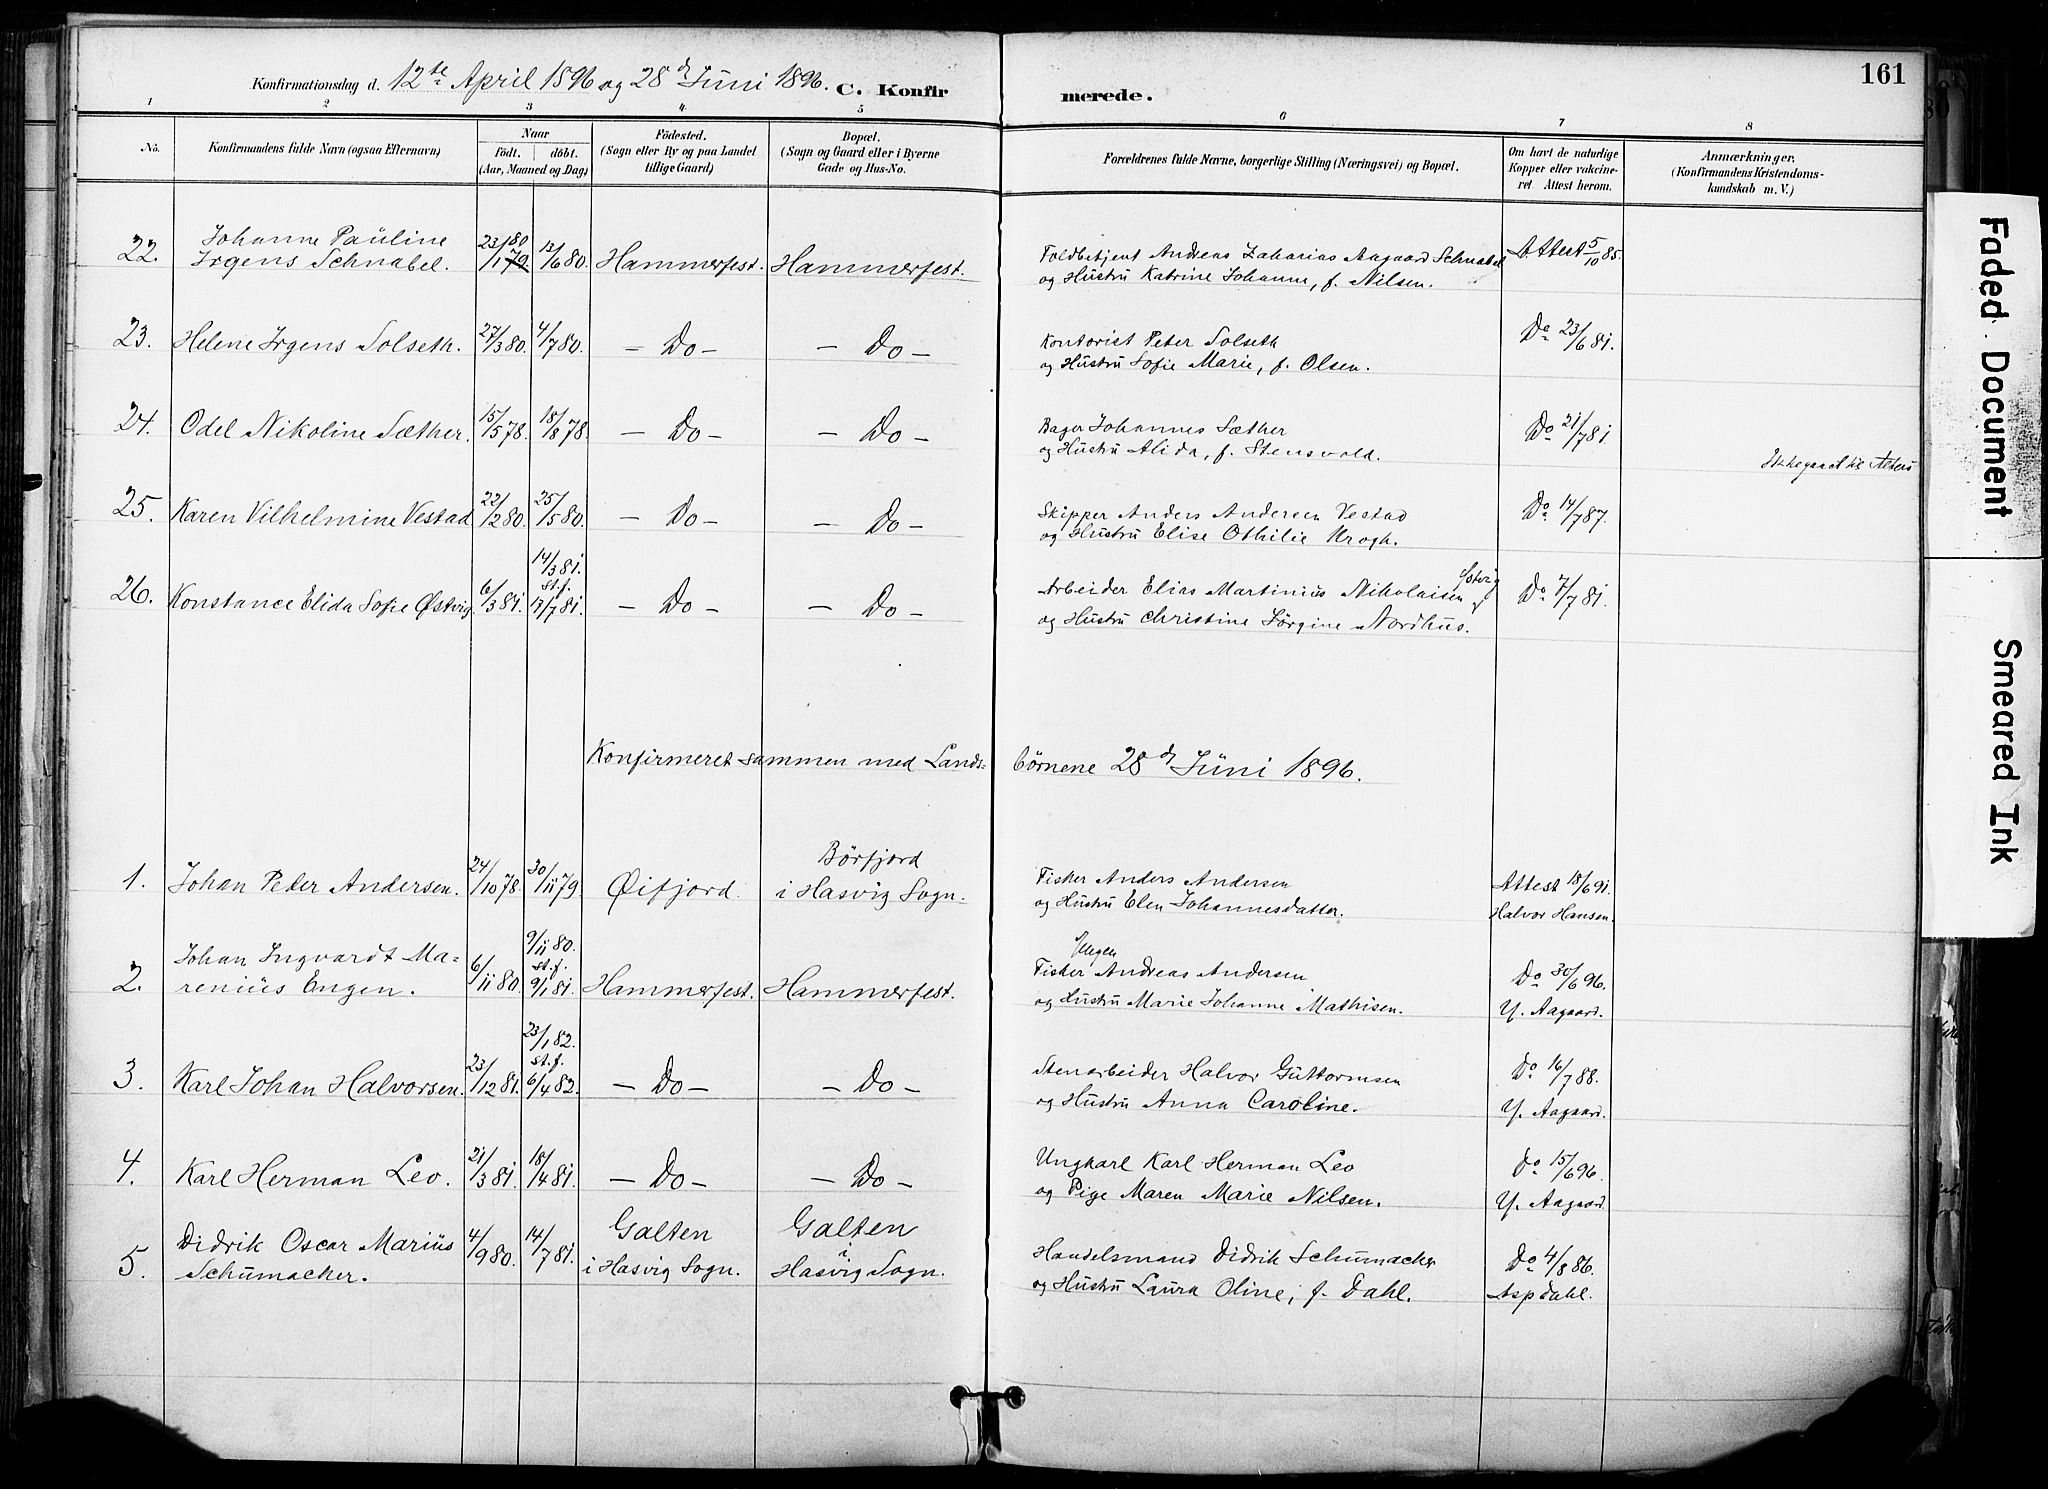 161
Konfirmationsdag d. 12te April 1896 og 28de Juni 1896. C. Konfir merede.
1 2 3 4 5 6 7 8
No. Konfirmandens fulde Navn (ogsaa Efternavn) Naar Födt. döbt. (Aar, Maaned og Dag) Födested. (Sogn eller By og paa Landet tillige Gaard) Bopæl. (Sogn og Gaard eller i Byerne Gade og Hus-No. Forældrenes fulde Navne, borgerlige Stilling (Næringsvei) og Bopæl. Om havt de naturlige Kopper eller vakcineret Attest herom. Anmærkninger. (Konfirmandens Kristendomskundskab m. V.)
22. Johanne Pauline Irgens Schnabel. 23/1 80 79 13/6 80. Hammerfest. Hammerfest. Toldbetjent Andreas Zakarias Aagaard Schnabel Attest 5/10 85.
og Hustru Katrine Johanne, f. Nilsen.
23. Helene Irgens Solseth. 27/3 80. 4/7 80. — Do — — Do — Kontorist Peter Solseth Do 23/6 81.
og Hustru Sofie Marie, f. Olsen.
24. Odel Nikoline Sæther. 15/5 78. 18/8 78. — Do — — Do — Bager Johannes Sæther Do 21/7 81
og Hustru Alida, f. Stensvold.
25. Karen Vilhelmine Vestad 22/2 80. 25/5 80. — Do — — Do — Skipper Anders Andersen Vestad Do 14/7 87.
og Hustru Elise Othilie Krogh.
26. Konstance Elida Sofie Østvig. 6/3 81. 14/3 81. st. f. 17/7 81. — Do — — Do — Arbeider Elias Martinius Nikolaisen Østvig Do 7/7 81.
og Hustru Christine Jörgine Nordhus.
Konfirmeret sammen med Lands- börnene 28de Juni 1896.
1. Johan Peder Andersen. 24/10 78. 30/11 79. Øifjord. Börfjord i Hasvig Sogn. Fisker Anders Andersen Attest 18/6 91.
og Hustru Elen Johannesdatter. Halvor Hansen.
2. Johan Ingvardt Marenius Engen. 6/11 80. 9/11 80. st. f. 9/1 81. Hammerfest. Hammerfest. Fisker Andreas Andersen Engen Do 30/6 96.
og Hustru Marie Johanne Mathisen. Y. Aagaard.
3. Karl Johan Halvorsen. 23/12 81. 23/1 82. st. f. 6/4 82. — Do — — Do — Stenarbeider Halvor Guttormsen Do 16/7 88.
og Hustru Anna Caroline. Y. Aagaard.
4. Karl Herman Leo. 21/3 81. 18/4 81. — Do — — Do — Ungkarl Karl Herman Leo Do 15/6 96.
og Pige Maren Marie Nilsen. Y. Aagaard.
5. Didrik Oscar Marius Schumacher. 4/9 80. 14/7 81. Galten i Hasvig Sogn. Galten i Hasvig Sogn. Handelsmand Didrik Schumacher Do 4/8 86.
og Hustru Laura Oline, f. Dahl. Asp Dahl.
Faded Document
Smeared Ink